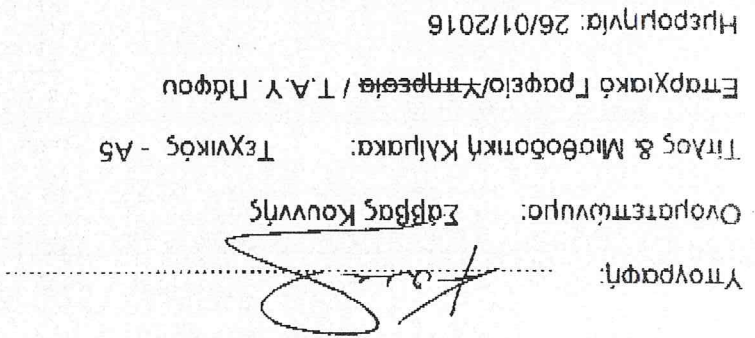 Υπογραφή:
Ονοματεπώνυμο: Σάββας Κουννής
Τίτλος & Μισθοδοτική Κλίμακα: Τεχνικός - Α5
Επαρχιακό Γραφείο/Υπηρεσία / Τ.Α.Υ. Πάφου
Ημερομηνία: 26/01/2016